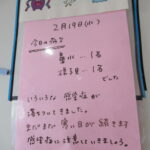 2月19日(水)
今日のお休み
一名
一名
でした
いろいろな感染症が
落ちついてきました。
まだまだ寒い日が続きます
感染症に注意していきましょう。